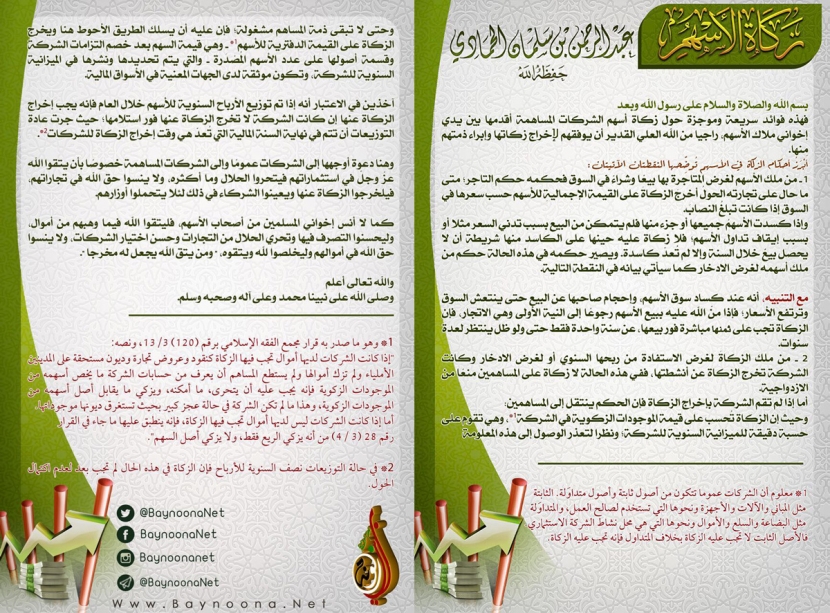 زكاة الأسهم
عبد الرحمن بن سلمان الحمادي
حفظه الله
بسم الله والصلاة والسلام على رسول الله وبعد
فهذه فوائد سريعة وموجزة حول زكاة أسهم الشركات المساهمة أقدمها بين يدي
إخواني ملاك الأسهم، راجيا من الله العلي القدير أن يوفقهم لإخراج زكاتها وإبراء ذمتهم
منها.
أبرز أحكام الزكاة في الأسهم توضحها النقطتان الآتيتان:
1 ـ من ملك الأسهم لغرض المتاجرة بها بيعا وشراء في السوق فحكمه حكم التاجر؛ متى
ما حال على تجارته الحول أخرج الزكاة على القيمة الإجمالية للأسهم حسب سعرها في
السوق إذا كانت تبلغ النصاب.
وإذا كسدت الأسهم جميعها أو جزء منها فلم يتمكن من البيع بسبب تدني السعر مثلا أو
بسبب إيقاف تداول الأسهم؛ فلا زكاة عليه حينها على الكاسد منها شريطة أن لا
يحصل بيع خلال السنة وإلا لم تعد كاسدة. ويصير حكمه في هذه الحالة حكم من
ملك أسهمه لغرض الادخار كما سيأتي بيانه في النقطة التالية.
مع التنبيه، أنه عند كساد سوق الأسهم، وإحجام صاحبها عن البيع حتى ينتعش السوق
وترتفع الأسعار؛ فإذا منّ الله عليه ببيع الأسهم رجوعا إلى النية الأولى وهي الاتجار، فإن
الزكاة تجب على ثمنها مباشرة فور بيعها، عن سنة واحدة فقط حتى ولو ظل ينتظر لعدة
سنوات.
2 ـ من ملك الزكاة لغرض الاستفادة من ربحها السنوي أو لغرض الادخار وكانت
الشركة تخرج الزكاة عن أنشطتها، ففي هذه الحالة لا زكاة على المساهمين منعا من
الازدواجية.
أما إذا لم تقم الشركة بإخراج الزكاة فإن الحكم ينتقل إلى المساهمين؛
وحيث إن الزكاة تحسب على قيمة الموجودات الزكوية في الشركة1*، وهي تقوم على
حسبة دقيقة للميزانية السنوية للشركة؛ ونظرا لتعذر الوصول إلى هذه المعلومة
1* معلوم أن الشركات عموما تتكون من أصول ثابتة وأصول متداولة. الثابتة
مثل المباني والآلات والأجهزة ونحوها التي تستخدم لصالح العمل، والمتداولة
مثل البضاعة والسلع والأموال ونحوها التي هي محل نشاط الشركة الاستثماري
فالأصل الثابت لا تجب عليه الزكاة بخلاف المتداول فإنه تجب عليه الزكاة.
وحتى لا تبقى ذمة المساهم مشغولة؛ فإن عليه أن يسلك الطريق الأحوط هنا ويخرج
الزكاة على القيمة الدفترية للأسهم1* ـ وهي قيمة السهم بعد خصم التزامات الشركة
وقسمة أصولها على عدد الأسهم المصدرة ـ والتي يتم تحديدها ونشرها في الميزانية
السنوية للشركة، وتكون موثقة لدى الجهات المعنية في الأسواق المالية.
آخذين في الاعتبار أنه إذا تم توزيع الأرباح السنوية للأسهم خلال العام فإنه يجب إخراج
الزكاة عنها إن كانت الشركة لا تخرج الزكاة عنها فور استلامها؛ حيث جرت عادة
التوزيعات أن تتم في نهاية السنة المالية التي تعد هي وقت إخراج الزكاة للشركات2*.
وهنا دعوة أوجهها إلى الشركات عموما وإلى الشركات المساهمة خصوصا بأن يتقوا الله
عز وجل في استثماراتهم فيتحروا الحلال وما أكثره، ولا ينسوا حق الله في تجاراتهم،
فيخرجوا الزكاة عنها ويعينوا الشركاء في ذلك لئلا يتحملوا أوزارهم.
كما لا أنس إخواني المسلمين من أصحاب الأسهم، فليتقوا الله فيما وهبهم من أموال،
وليحسنوا التصرف فيها وتحري الحلال من التجارات وحسن اختيار الشركات، ولا ينسوا
حق الله في أموالهم وليخلصوا لله ويتقوه، "ومن يتق الله يجعل له مخرجا".
والله تعالى أعلم
وصلى الله على نبينا محمد وعلى آله وصحبه وسلم.
1* وهو ما صدر به قرار مجمع الفقه الإسلامي برقم (120) 13/3، ونصه:
"إذا كانت الشركات لديها أموال تجب فيها الزكاة كنقود وعروض تجارة وديون مستحقة على المدينين
الأملياء ولم تزك أموالها ولم يستطع المساهم أن يعرف من حسابات الشركة ما يخص أسهمه من
الموجودات الزكوية فإنه يجب عليه أن يتحرى، ما أمكنه، ويزكي ما يقابل أصل أسهمه من
الموجودات الزكوية، وهذا ما لم تكن الشركة في حالة عجز كبير بحيث تستغرق ديونها موجوداتها.
أما إذا كانت الشركات ليس لديها أموال تجب فيها الزكاة، فإنه ينطبق عليها ما جاء في القرار
رقم 28 (3 / 4) من أنه يزكي الريع فقط، ولا يزكي أصل السهم".
2* في حالة التوزيعات نصف السنوية للأرباح فإن الزكاة في هذه الحال لم تجب بعد لعدم اكتمال
الحول.
@BaynoonaNet
BaynoonaNet
Baynoonanet
@BaynoonaNet
Www.Baynoona.Net